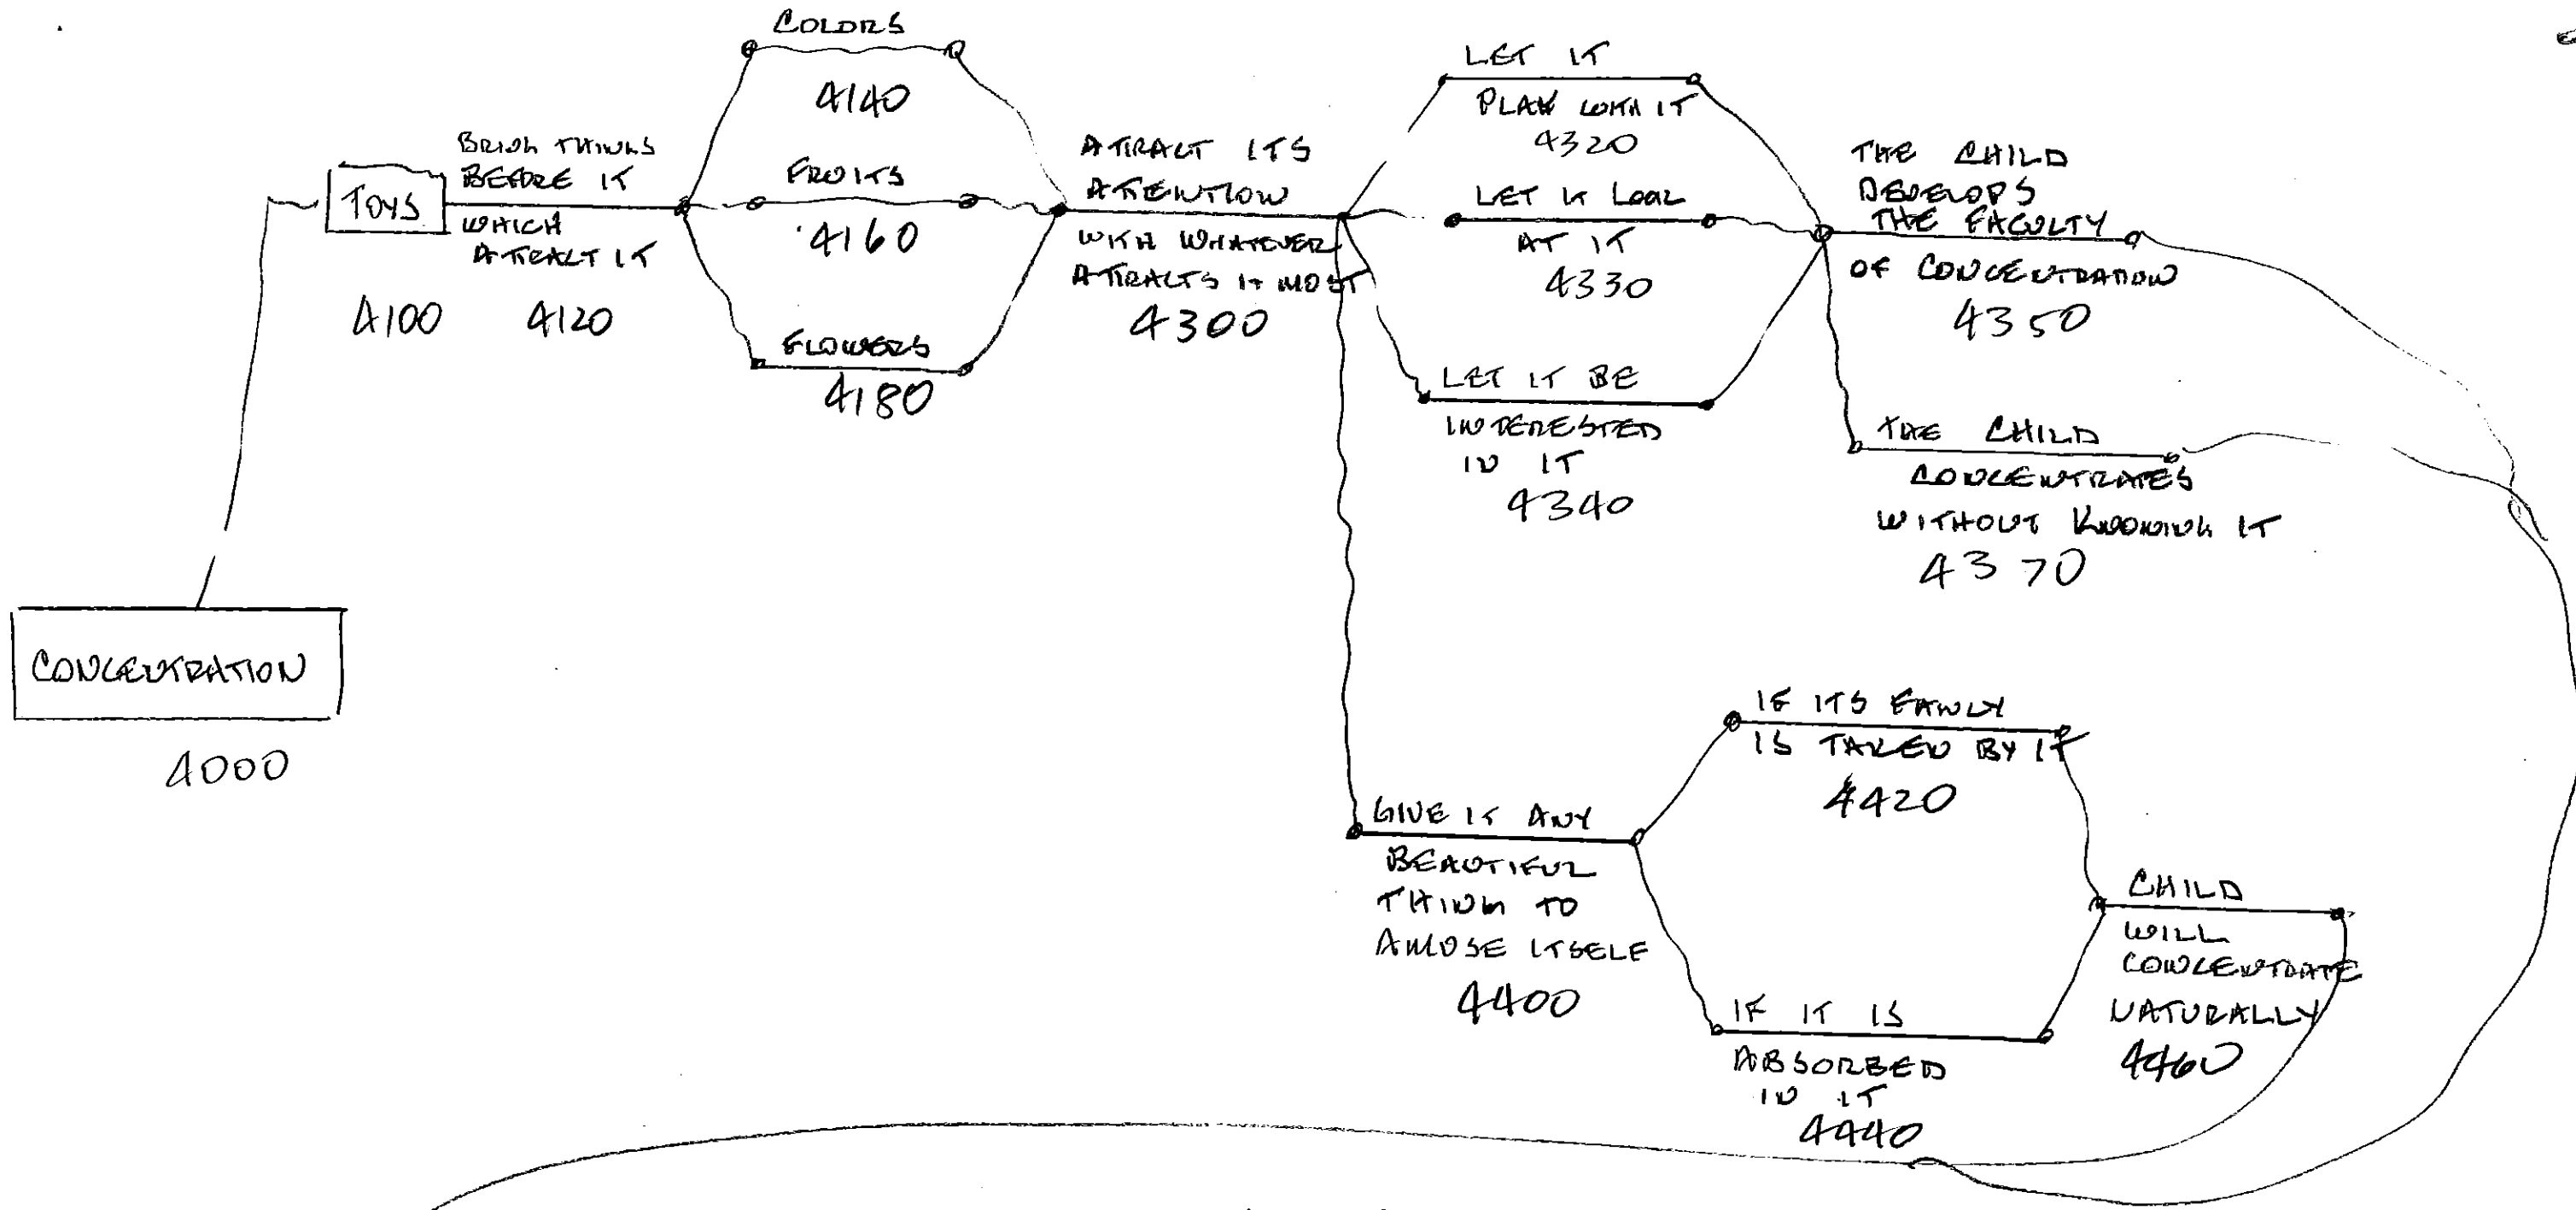 COLORS
4140
BRING THINGS
BEFORE IT
WHICH
ATTRACT IT
TOYS
4100
4120
FRUITS
4160
FLOWERS
4180
ATTRACT ITS
ATTENTION
WITH WHATEVER
ATTRACTS IT MOST
4300
LET IT
PLAY WITH IT
4320
LET IT LOOK
AT IT
4330
LET IT BE
INTERESTED
IN IT
4340
THE CHILD
DEVELOPS
THE FACULTY
OF CONCENTRATION
4350
THE CHILD
CONCENTRATES
WITHOUT KNOWING IT
4370
CONCENTRATION
4000
GIVE IT ANY
BEAUTIFUL
THING TO
AMUSE ITSELF
4400
IF ITS FANCY
IS TAKEN BY IT
4420
IF IT IS
ABSORBED
IN IT
4440
CHILD
WILL
CONCENTRATE
NATURALLY
4460